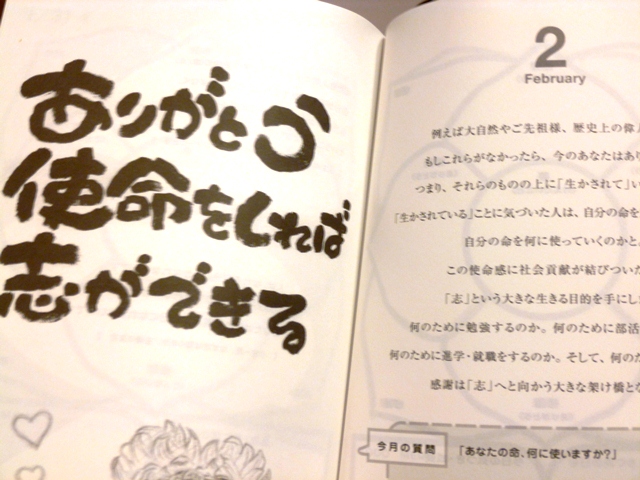 ありがとう
使命をしれば
志ができる
2
February
例えば大自然やご先祖様、歴史上の偉
もしこれらがなかったら、今のあなたはあ
つまり、それらのものの上に「生かされて」い
「生かされている」ことに気づいた人は、自分の命を
自分の命を何に使っていくのかと
この使命感に社会貢献が結びついた
「志」という大きな生きる目的を手にし
何のために勉強するのか。何のために部活
何のために進学・就職をするのか。そして、何のた
感謝は「志」へと向かう大きな架け橋と
今月の質問
「あなたの命、何に使いますか?」